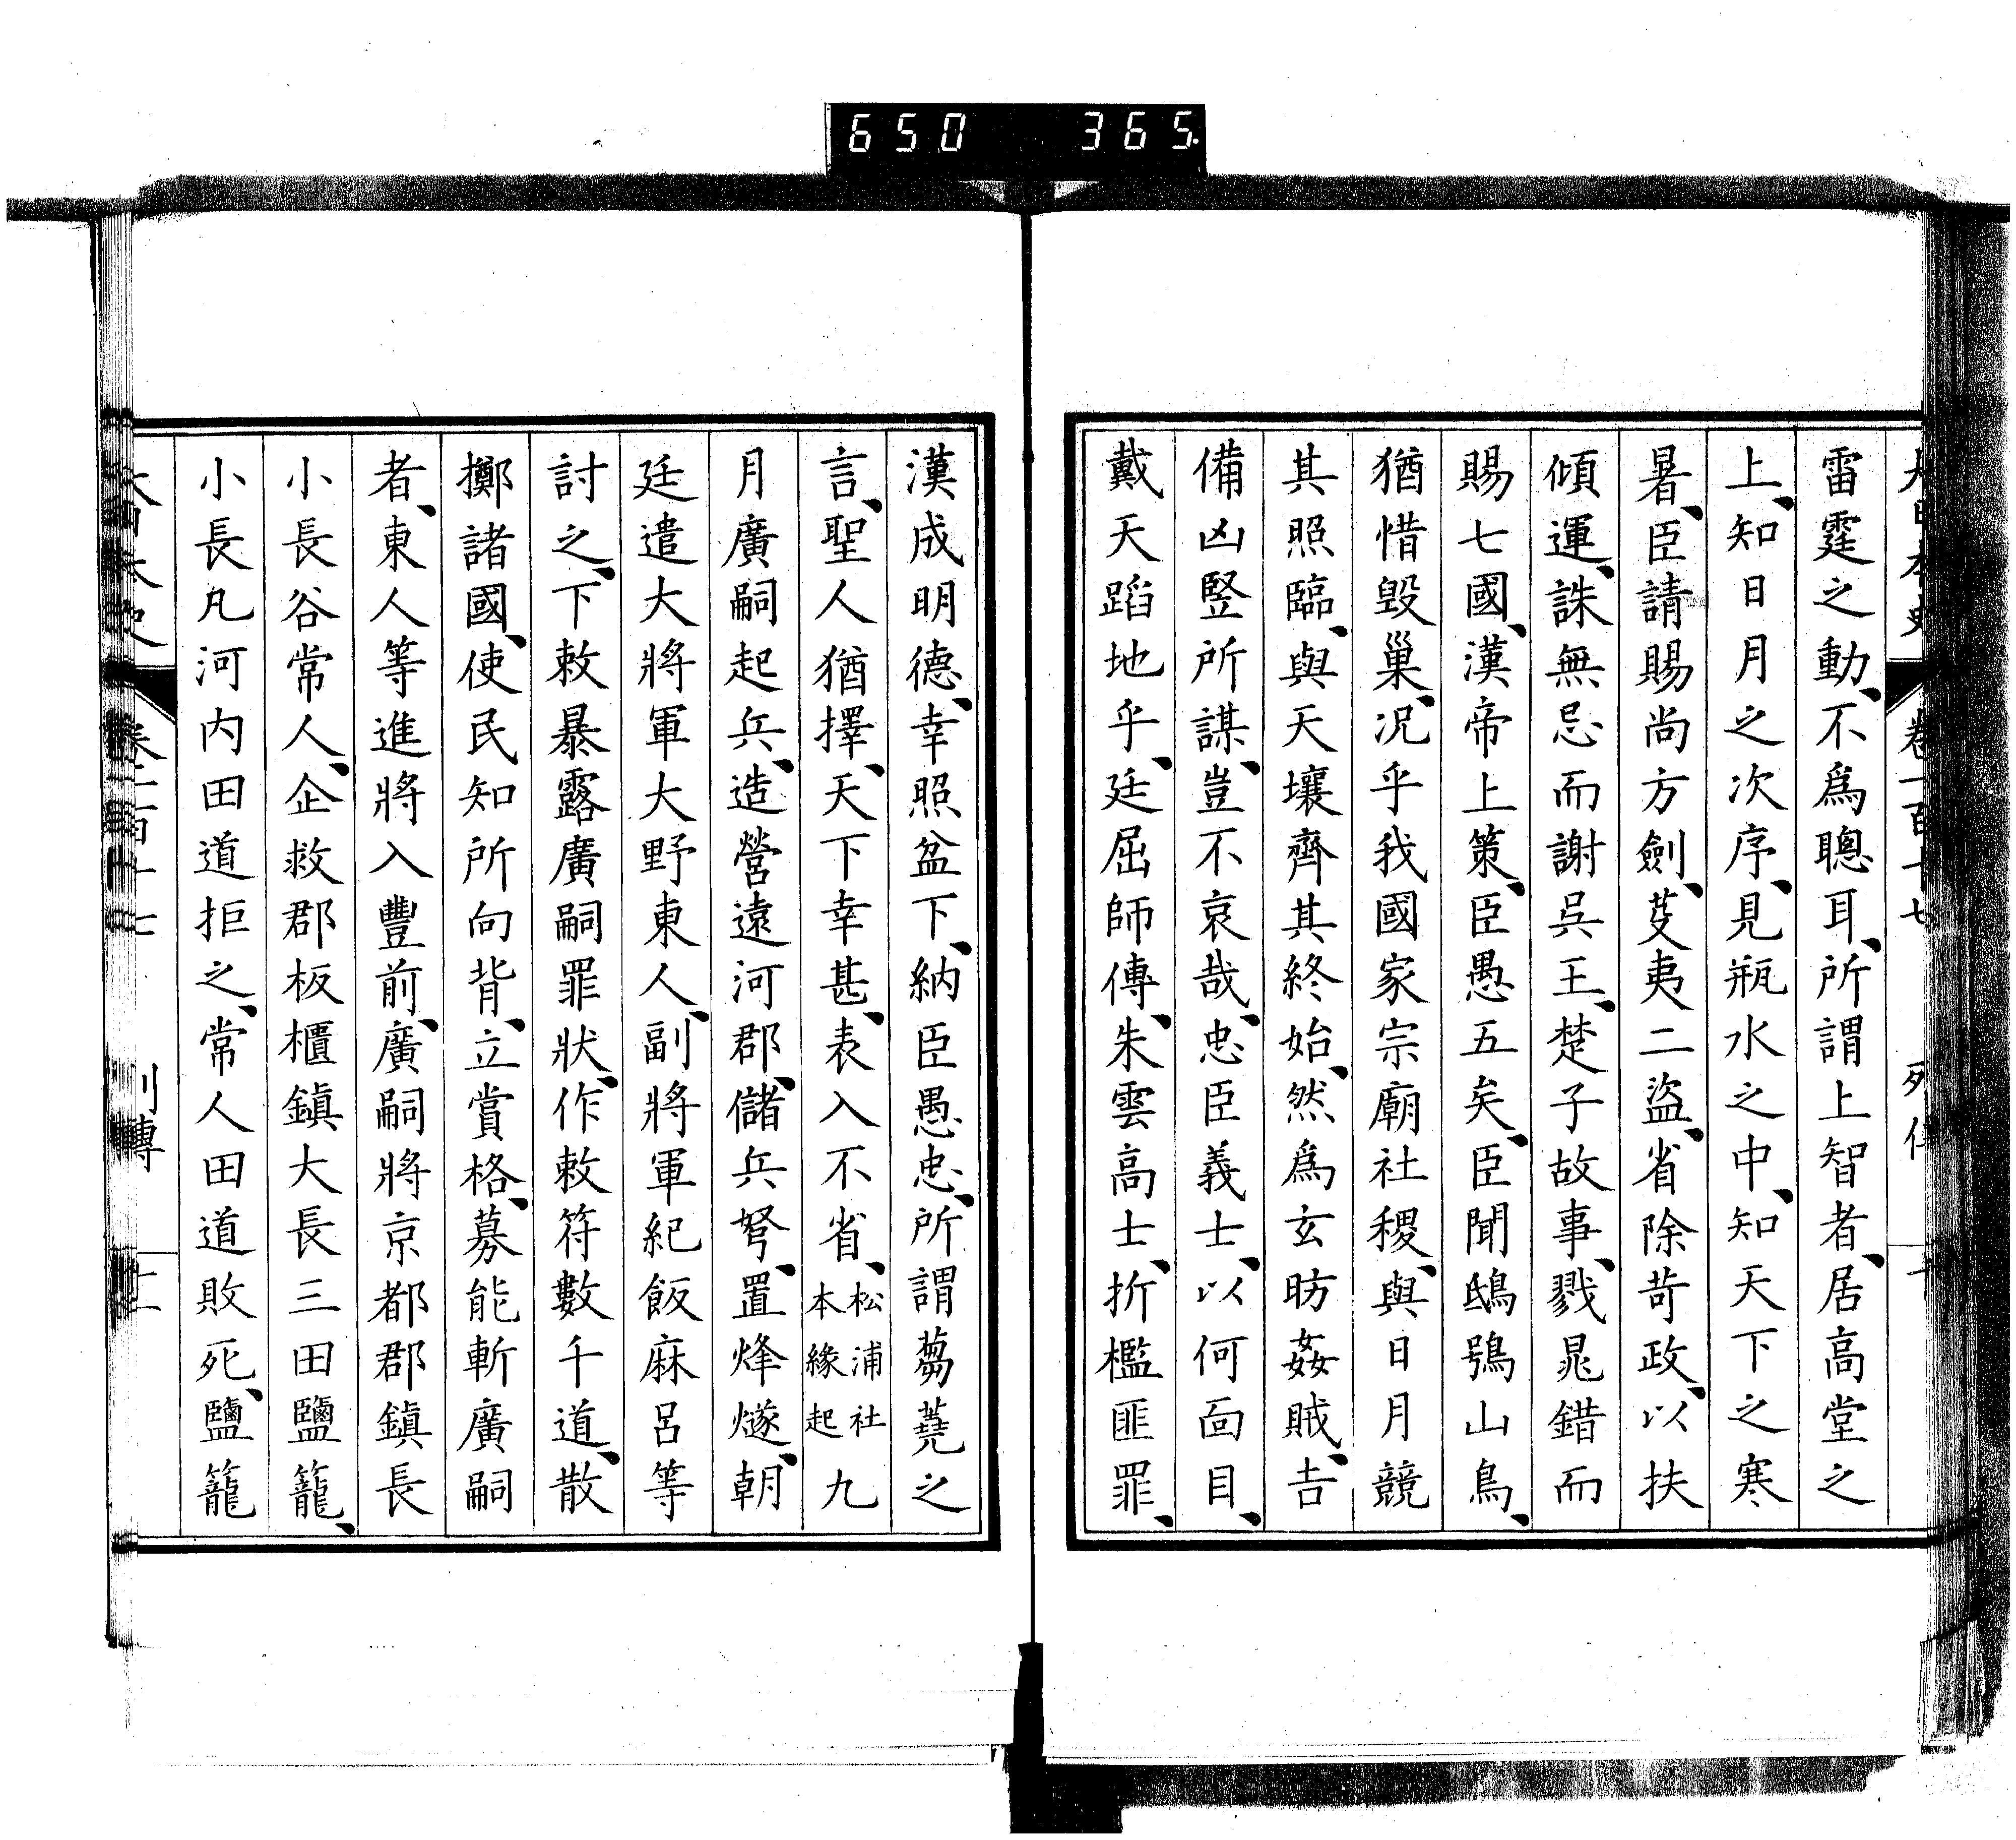 650 365
雷霆之動、不爲聰耳、所謂上智者、居高堂之
上、知日月之次序、見瓶水之中、知天下之寒
暑、臣請賜尚方劍、芟夷二盜、省除苛政、以扶
傾運、誅無忌而謝呉王、楚子故事、戮晁錯而
賜七國、漢帝上策、臣愚五矣、臣聞鴟鴞山鳥、
猶惜毀巢、況乎我國家宗廟社稷、與日月競
其照臨、與天壤齊其終始、然爲玄昉姦賊、吉
備凶竪所謀、豈不哀哉、忠臣義士、以何面目、
戴天蹈地乎、廷屈師傳、朱雲高士、折檻匪罪、
漢成明德、幸照盆下、納臣愚忠、所謂蒭蕘之
言、聖人猶擇、天下幸甚、表入不省、松浦社本緣起九
月廣嗣起兵、造營遠河郡、儲兵弩、置烽燧、朝
廷遣大將軍大野東人、副將軍紀飯麻呂等
討之、下敕暴露廣嗣罪狀、作敕符數千道、散
擲諸國、使民知所向背、立賞格、募能斬廣嗣
者、東人等進將入豐前、廣嗣將京都郡鎭長
小長谷常人、企救郡板櫃鎭大長三田鹽籠、
小長凡河内田道拒之、常人田道敗死、鹽籠